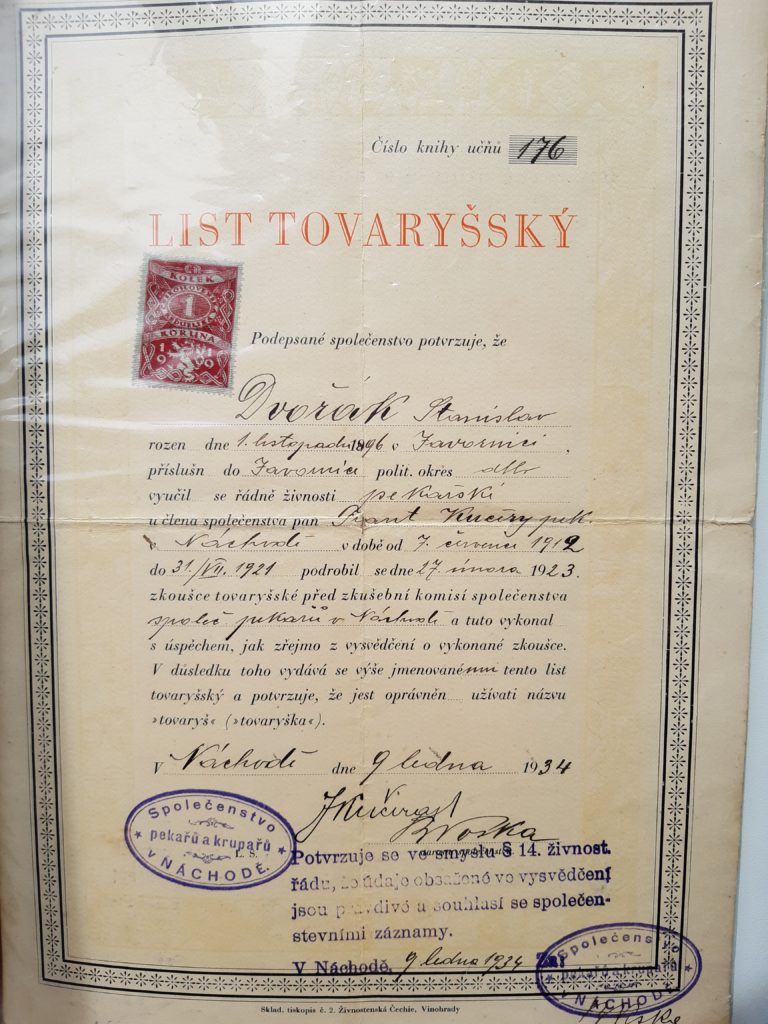 Číslo knihy učňů 176
LIST TOVARYŠSKÝ
KOLEK
1
KORUNA
Podepsané společenstvo potvrzuje, že
Dvořák Stanislav
rozen dne 1. listopadu 1896 v Javornici,
příslušn do Javornice polit. okres dtto
vyučil se řádně živnosti pekařské
u člena společenstva pan Frant Kučery pek.
v Náchodě v době od 7. července 1912
do 31./VII. 1921 podrobil se dne 27. února 1923.
zkoušce tovaryšské před zkušební komisí společenstva
společ pekařů v Náchodě a tuto vykonal
s úspěchem, jak zřejmo z vysvědčení o vykonané zkoušce.
V důsledku toho vydává se výše jmenovanému tento list
tovaryšský a potvrzuje, že jest oprávněn užívati názvu
»tovaryš« (»tovaryška«).
V Náchodě dne 9 ledna 1934
Společenstvo
pekařů a krupařů
v NÁCHODĚ.
L. S.
Potvrzuje se ve smyslu § 14. živnost.
řádu, že údaje obsažené ve vysvědčení
jsou pravdivé a souhlasí se společen-
stevními záznamy.
V Náchodě, 9 ledna 1934 Za:
Společenstvo
pekařů a krupařů
v NÁCHODĚ.
Sklad. tiskopis č. 2. Živnostenská Čechie, Vinohrady